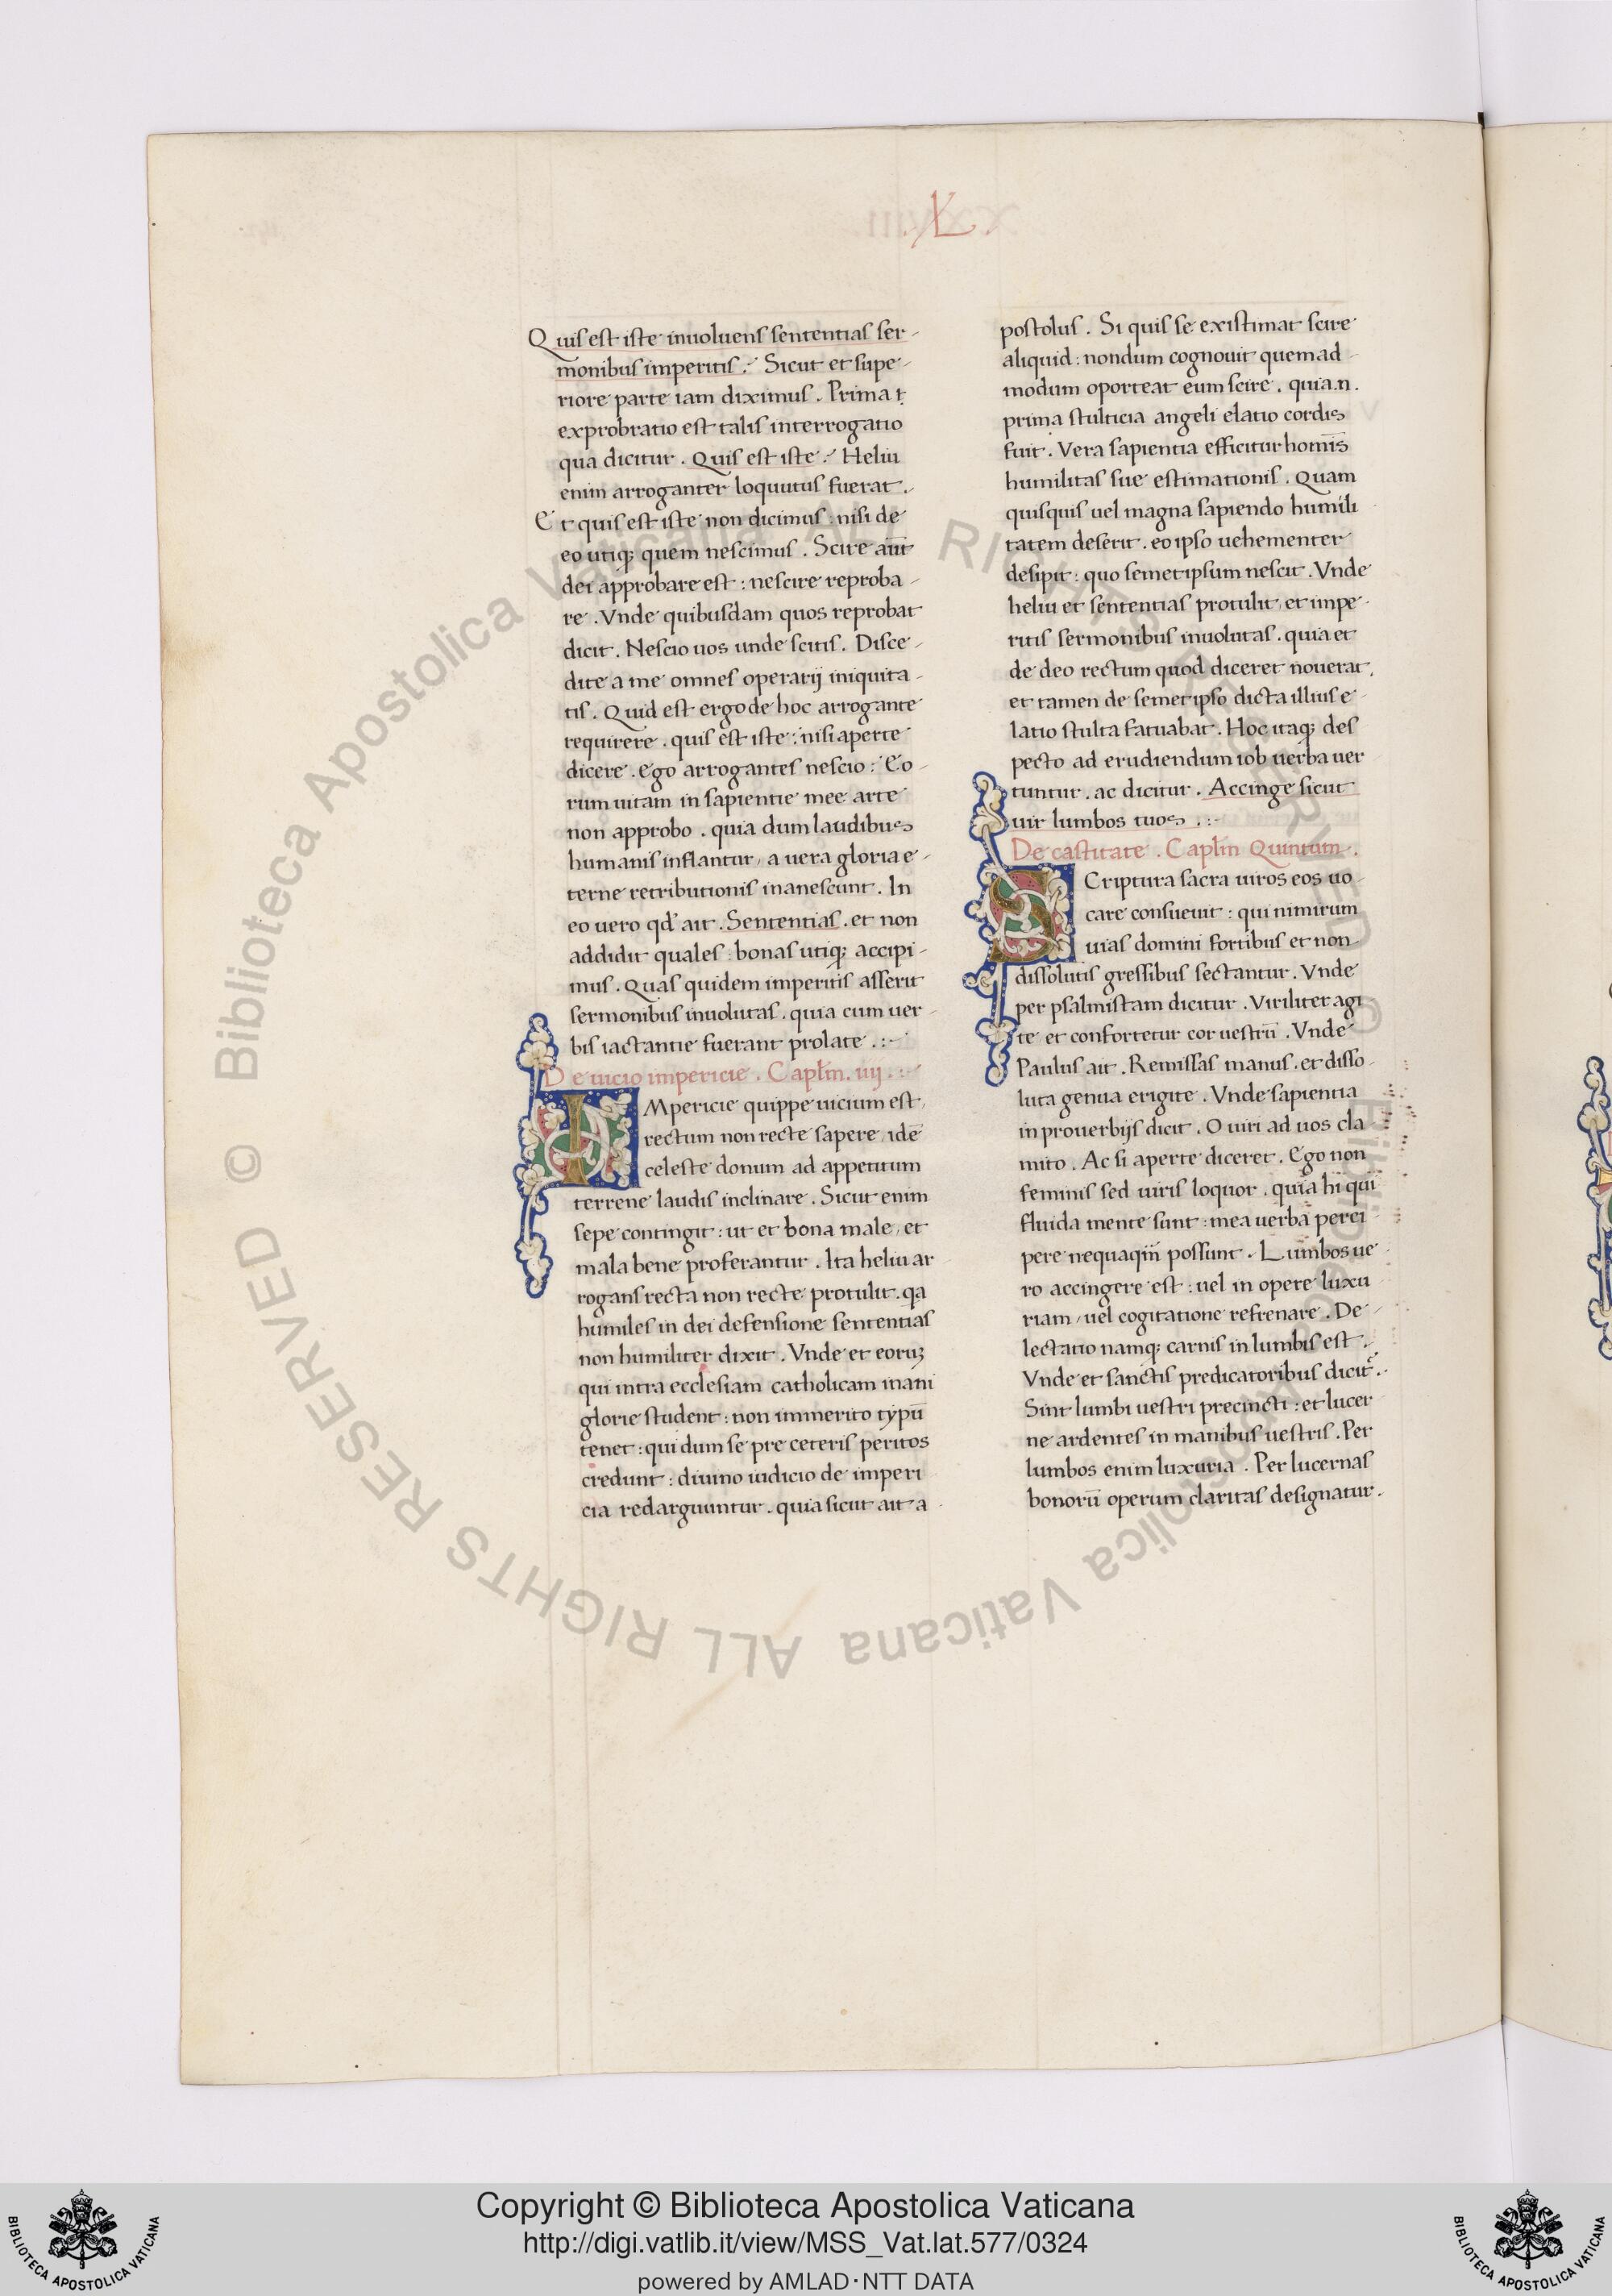 L
Quis est iste inuoluens sententias ser-
monibus imperitis. Sicut et supe-
riore parte iam diximus. Prima t
exprobratio est talis interrogatio
qua dicitur. Quis est iste. Heliu
enim arroganter loquutus fuerat.
Et quis est iste non dicimus: nisi de
eo utiqꝫ quem nescimus. Scire aūt
dei approbare est: nescire reproba-
re. Vnde quibusdam quos reprobat
dicit. Nescio uos unde scitis. Disce-
dite a me omnes operarij iniquita-
tis. Quid est ergo de hoc arrogante
requirere. quis est iste: nisi aperte
dicere. ego arrogantes nescio: Eo-
rum uitam in sapientie mee arte
non approbo. quia dum laudibus
humanis inflantur, a uera gloria e-
terne retributionis inanescunt. In
eo uero qd' ait. Sententias. et non
addidit quales: bonas utiqꝫ accipi-
mus. Quas quidem imperitis asserit
sermonibus inuolutas. quia cum uer-
bis iactantie fuerant prolate.:-
De uicio impericie. Capl̄m. iiij.:-
IMpericie quippe uicium est,
rectum non recte sapere. idē
celeste donum ad appetitum
terrene laudis inclinare. Sicut enim
sepe contingit: ut et bona male, et
mala bene proferantur. Ita heliu ar
rogans recta non recte protulit. qa
humiles in dei defensione sententias
non humiliter dixit. Vnde et eoruꝫ
qui intra ecclesiam catholicam inani
glorie student: non immerito typū
tenet: qui dum se pre ceteris peritos
credunt: diuino iudicio de imperi
cia redarguuntur. quia sicut ait a
postolus. Si quis se existimat scire
aliquid: nondum cognouit quemad-
modum oporteat eum scire. quia.n.
prima stulticia angeli elatio cordis
fuit. Vera sapientia efficitur homīs
humilitas sue estimationis. Quam
quisquis uel magna sapiendo humili
tatem deserit. eo ipso uehementer
desipit: quo semetipsum nescit. Vnde
heliu et sententias protulit, et impe-
ritis sermonibus inuolutas. quia et
de deo rectum quod diceret nouerat,
et tamen de semetipso dicta illius e-
latio stulta fatuabat. Hoc itaqꝫ des
pecto ad erudiendum iob uerba uer
tuntur. ac dicitur. Accinge sicut
uir lumbos tuos.:-
De castitate. Capl̄m Quintum.
SCriptura sacra uiros eos uo-
care consueuit: qui nimirum
uias domini fortibus et non-
dissolutis gressibus sectantur. Vnde
per psalmistam dicitur. Viriliter agi
te et confortetur cor uestrū. Vnde
Paulus ait. Remissas manus. et disso-
luta genua erigite. Vnde sapientia
in prouerbijs dicit. O uiri ad uos cla
mito. Ac si aperte diceret. Ego non
feminis sed uiris loquor. quia hi qui
fluida mente sunt: mea uerba perci-
pere nequaqm̄ possunt. Lumbos ue
ro accingere est: uel in opere luxu
riam, uel cogitatione refrenare. De-
lectatio namqꝫ carnis in lumbis est.
Vnde et sanctis predicatoribus dicit̉.
Sint lumbi uestri precincti: et lucer
ne ardentes in manibus uestris. Per
lumbos enim luxuria. Per lucernas
bonorū operum claritas designatur.
© Biblioteca Apostolica Vaticana ALL RIGHTS RESERVED © Biblioteca Apostolica Vaticana ALL RIGHTS RESERVED
Copyright © Biblioteca Apostolica Vaticana
http://digi.vatlib.it/view/MSS_Vat.lat.577/0324
powered by AMLAD·NTT DATA
BIBLIOTECA APOSTOLICA VATICANA
BIBLIOTECA APOSTOLICA VATICANA